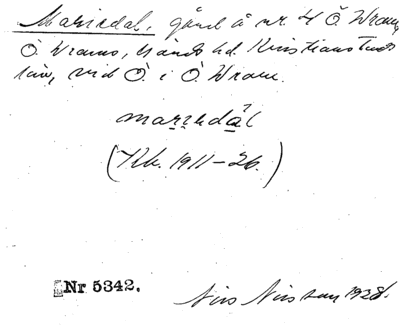 Mariedal, gård å nr 4 Ö Wram,
Ö Wrams, Gärds hd. Kristianstads
län, vid Ö. i Ö. Wram.
marıedǻl
(Kb. 1911–26.)
Nr 5342.
Nils Nilsson 1928.